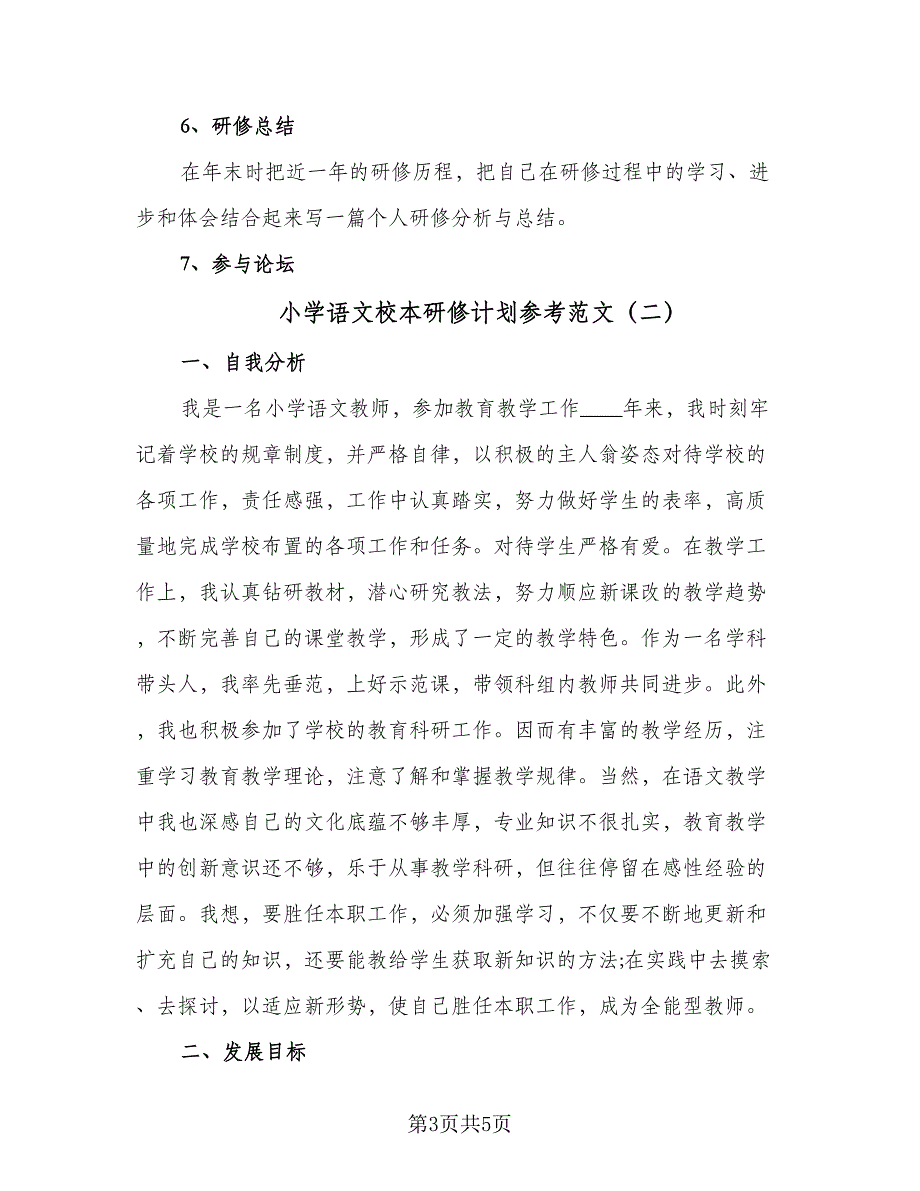 6、研修总结
在年末时把近一年的研修历程，把自己在研修过程中的学习、进
步和体会结合起来写一篇个人研修分析与总结。
7、参与论坛
小学语文校本研修计划参考范文（二）
一、自我分析
我是一名小学语文教师，参加教育教学工作____年来，我时刻牢
记着学校的规章制度，并严格自律，以积极的主人翁姿态对待学校的
各项工作，责任感强，工作中认真踏实，努力做好学生的表率，高质
量地完成学校布置的各项工作和任务。对待学生严格有爱。在教学工
作上，我认真钻研教材，潜心研究教法，努力顺应新课改的教学趋势
，不断完善自己的课堂教学，形成了一定的教学特色。作为一名学科
带头人，我率先垂范，上好示范课，带领科组内教师共同进步。此外
，我也积极参加了学校的教育科研工作。因而有丰富的教学经历，注
重学习教育教学理论，注意了解和掌握教学规律。当然，在语文教学
中我也深感自己的文化底蕴不够丰厚，专业知识不很扎实，教育教学
中的创新意识还不够，乐于从事教学科研，但往往停留在感性经验的
层面。我想，要胜任本职工作，必须加强学习，不仅要不断地更新和
扩充自己的知识，还要能教给学生获取新知识的方法;在实践中去摸索
、去探讨，以适应新形势，使自己胜任本职工作，成为全能型教师。
二、发展目标
第3页共5页